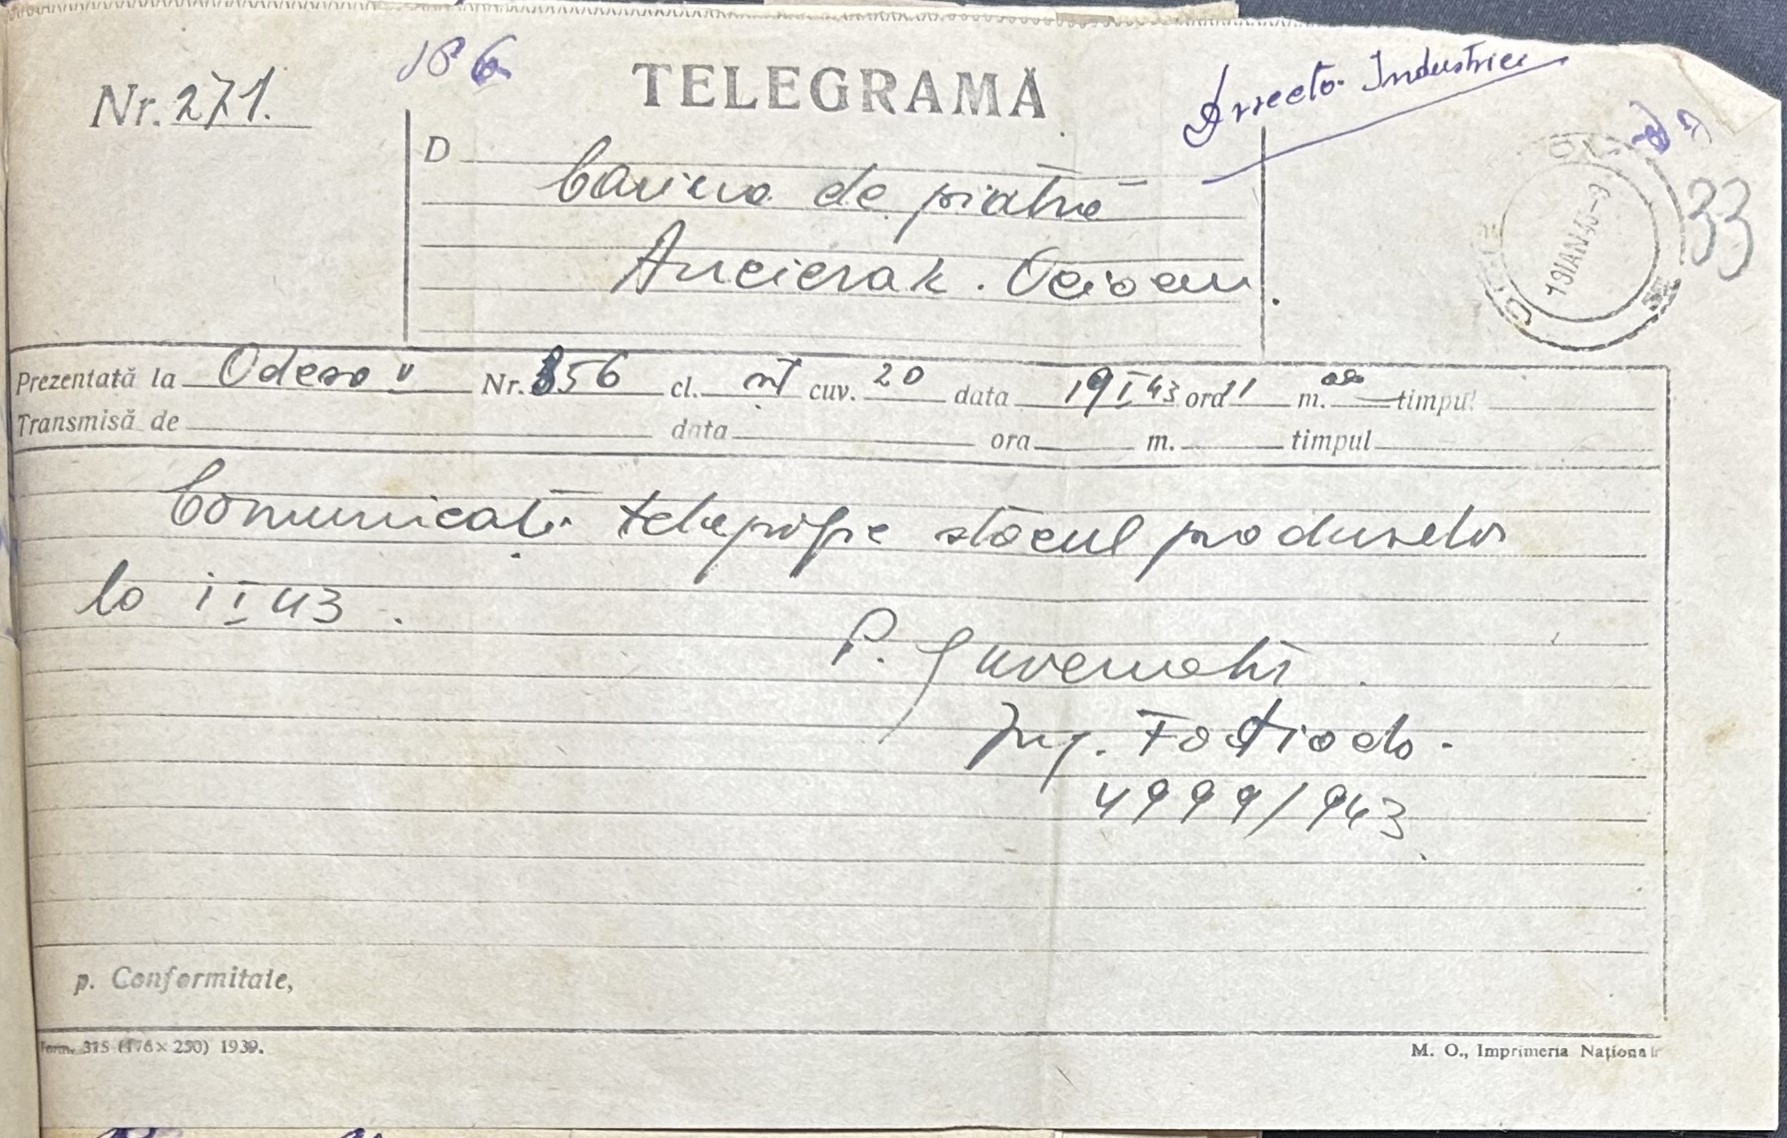 186
Nr. 271.
TELEGRAMĂ
Directo. Industriei
D Cariera de piatră
Oceacov.
19 IAN 43-9
33
Prezentată la Odesa Nr. 356 cl. cuv. 20 data 19 I 43 ora 11 m. timpul
Transmisă de data ora m. timpul
Comunicați telegrafic stocul produselor
la 1 I 43.
P. Guvernator
Ing. Fotiade.
4999/943
p. Conformitate,
Form. 315 (176×250) 1939.
M. O., Imprimeria Națională